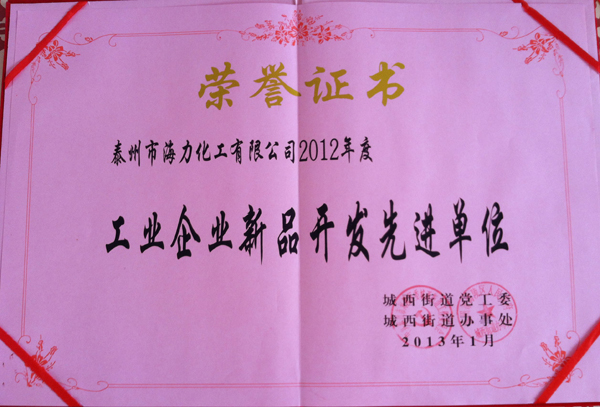 荣誉证书
泰州市海力化工有限公司2012年度
工业企业新品开发先进单位
城西街道党工委
城西街道办事处
2013年1月